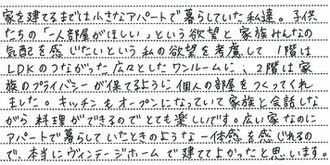 家を建てるまでは小さなアパートで暮らしていた私達。子供
たちの「一人部屋がほしい」という欲望と家族みんなの
気配を感じたいという私の欲望を考慮して1階は
LDKのつながった広々としたワンルームに、2階は家
族のプライバシーが保てるように個人の部屋をつくってくれ
ました。キッチンもオープンになっていて家族と会話しな
がら料理ができるのでとても楽しいです。広い家なのに
アパートで暮らしていたときのような一体感を感じれるの
で、本当にヴィンテージホームで建ててよかったと思います。